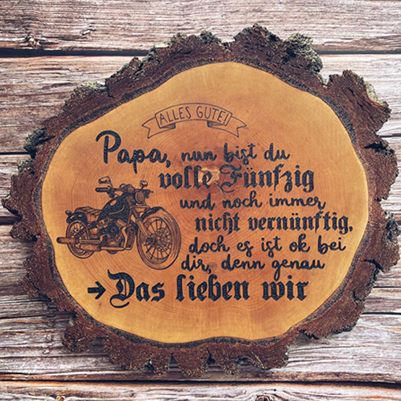 ALLES GUTE!
Papa, nun bist du
volle Fünfzig
und noch immer
nicht vernünftig,
doch es ist ok bei
dir, denn genau
→ Das lieben wir